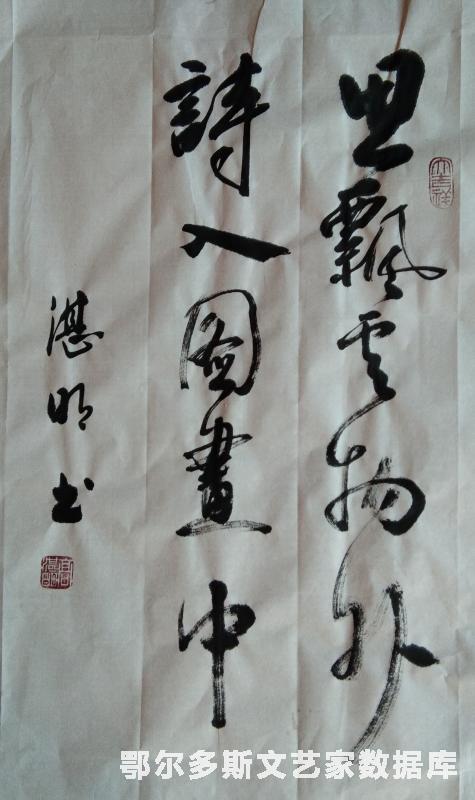 思飄云物外
大吉祥
詩入圖畫中
湛明书
鄂尔多斯文艺家数据库